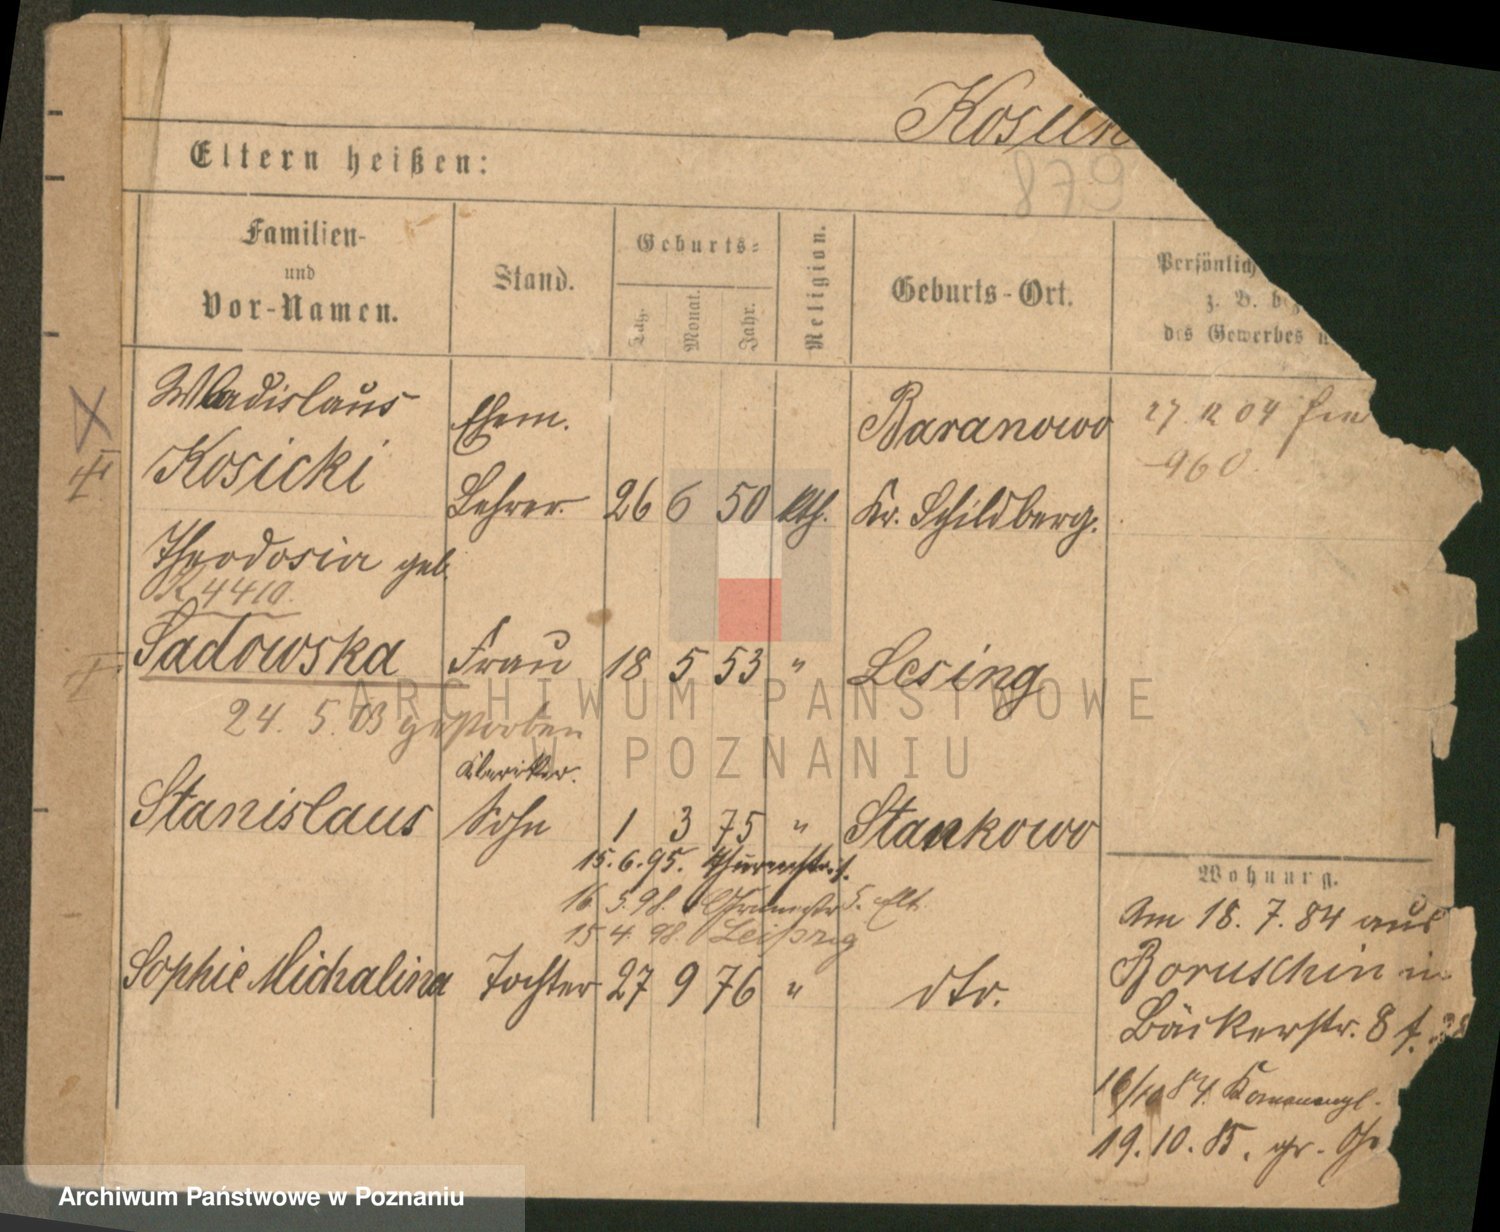 Kosick
879
Eltern heißen:
Familien-
und
Vor-Namen.
Stand.
Geburts-
Tag.
Monat.
Jahr.
Religion.
Geburts-Ort.
Persönlich
z. B. bez
des Gewerbes u
Wladislaus
Kosicki
Ehem.
Lehrer. 26 6 50 kth.
Baranowo
Kr. Schildberg.
27. 12 04
960
Theodosia geb.
K 4410.
Sadowska Frau 18 5 53 " Lesing
24. 5. 03 gestorben
Kleriker.
Stanislaus Sohn 1 3 75 " Stankowo
15.6.95. Thurmstr.
16 5.98. 5. Elt.
15 4. 98. Leipzig
Sophie Michalina Tochter 27 9 76 " dto.
Wohnung.
Am 18. 7. 84 aus
Boruschin in
Bäckerstr. 8
16/10 84.
19. 10. 85. gr.
ARCHIWUM PAŃSTWOWE
W POZNANIU
Archiwum Państwowe w Poznaniu